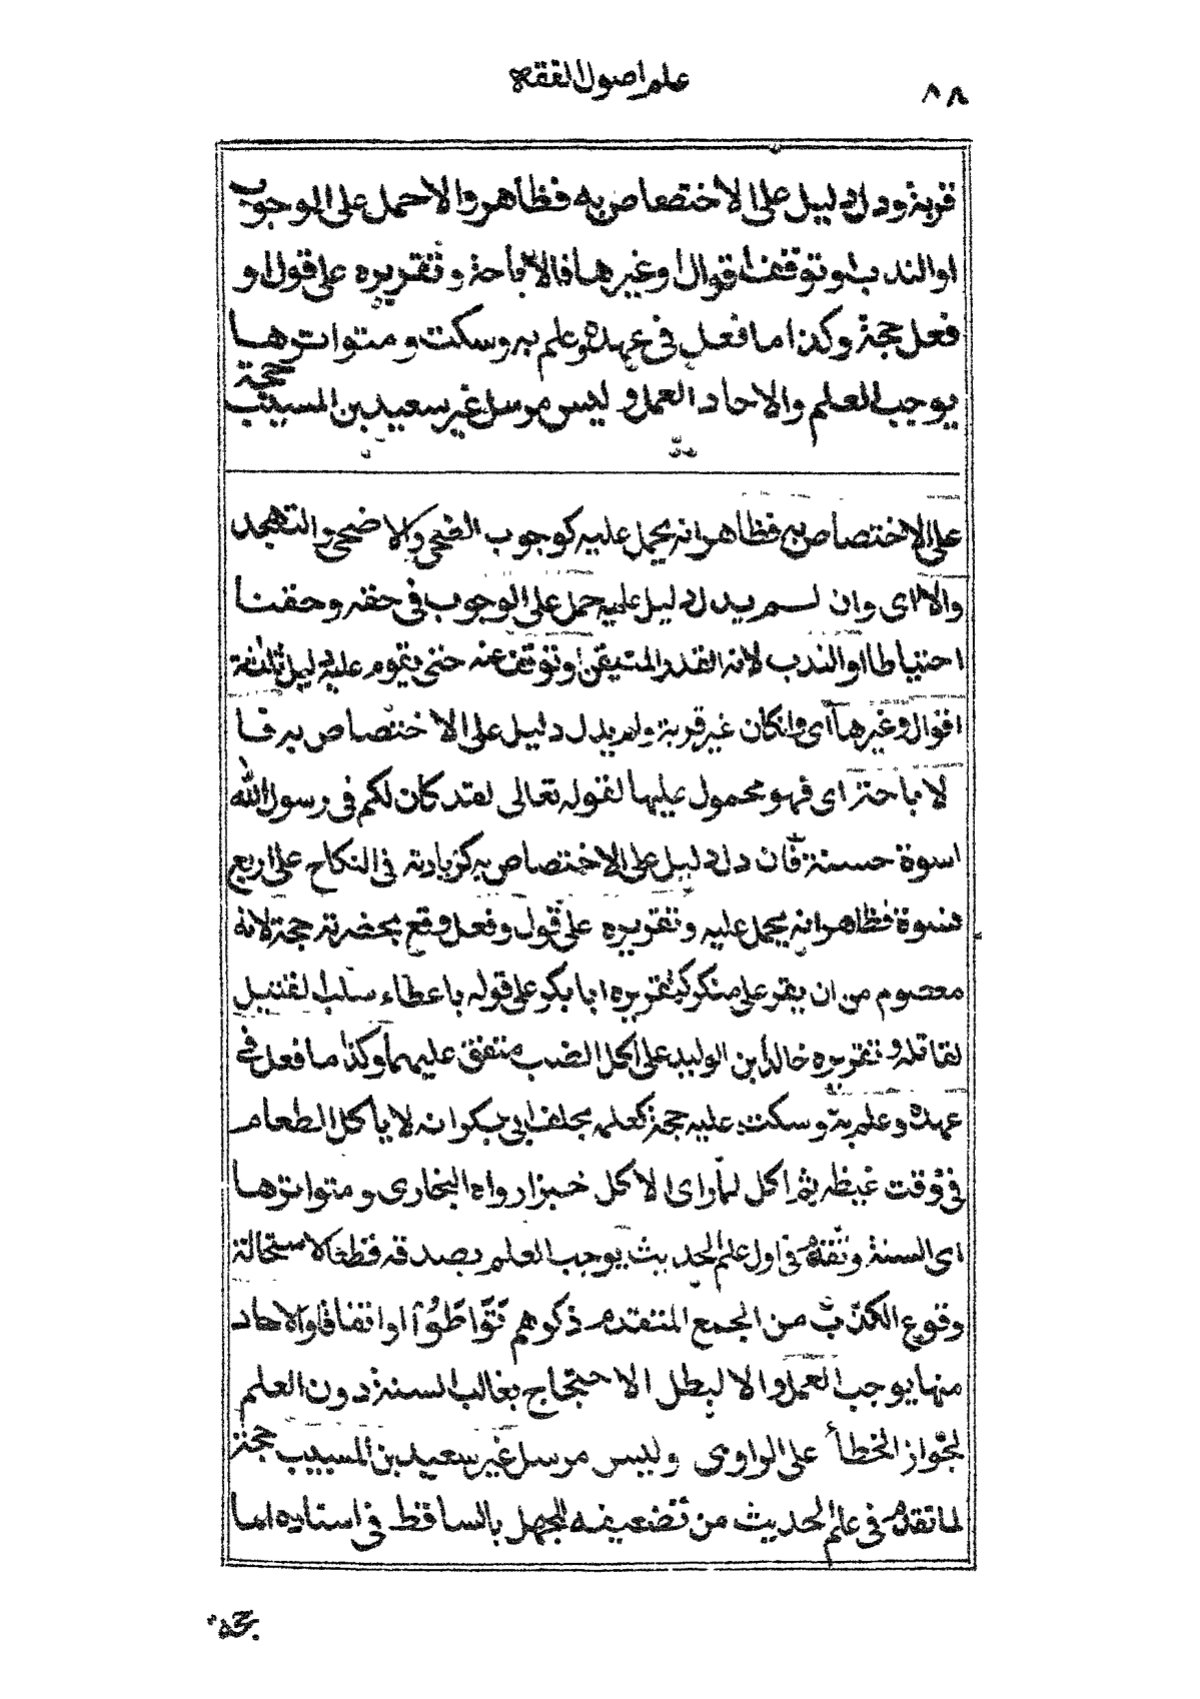 علم اصول الفقه
٨٨
قربة ودل دليل على الاختصاص به فظاهر والا حمل على الوجوب
او الندب او توقف اقوال او غيرها فالاباحة وتقريره على قول او
فعل حجة وكذا ما فعل فى عهده وعلم به وسكت ومتواترها
يوجب العلم والاحاد العمل وليس مرسل غير سعيد بن المسيب حجة
على الاختصاص به فظاهر انه يحمل عليه كوجوب الضحى والاضحى والتهجد
والا اى وان لم يدل دليل عليه حمل على الوجوب فى حقه وحقنا
احتياطا او الندب لانه القدر المتيقن او توقف عنه حتى يقوم عليه دليل ثلثة
اقوال وغيرها اى وانكان غير قربة ولم يدل دليل على الاختصاص به فا
لاباحة اى فهو محمول عليها لقوله تعالى لقد كان لكم فى رسول الله
اسوة حسنة فان دل دليل على الاختصاص به كزيادته فى النكاح على اربع
نسوة فظاهر انه يحمل عليه وتقريره على قول وفعل وقع بحضرته حجة لانه
معصوم من ان يقر على منكر كتقريره ابا بكر على قوله باعطاء سلب القتيل
لقاتله وتقريره خالد بن الوليد على اكل الضب متفق عليهما وكذا ما فعل فى
عهده وعلم به وسكت عليه حجة كعلمه بحلف ابى بكر انه لا ياكل الطعام
فى وقت غيظه ثم اكل لما راى الاكل خيرا رواه البخارى ومتواترها
اى السنة وتقدم فى اول علم الحديث يوجب العلم بصدقه قطعا لاستحالة
وقوع الكذب من الجمع المتقدم ذكرهم تَوَاطُؤًا او اتفاقا والاحاد
منها يوجب العمل والا لبطل الاحتجاج بغالب السنة دون العلم
لجواز الخطأ على الراوى وليس مرسل غير سعيد بن المسيب حجة
لما تقدم فى علم الحديث من تضعيفه للجهل بالساقط فى اسناده اما